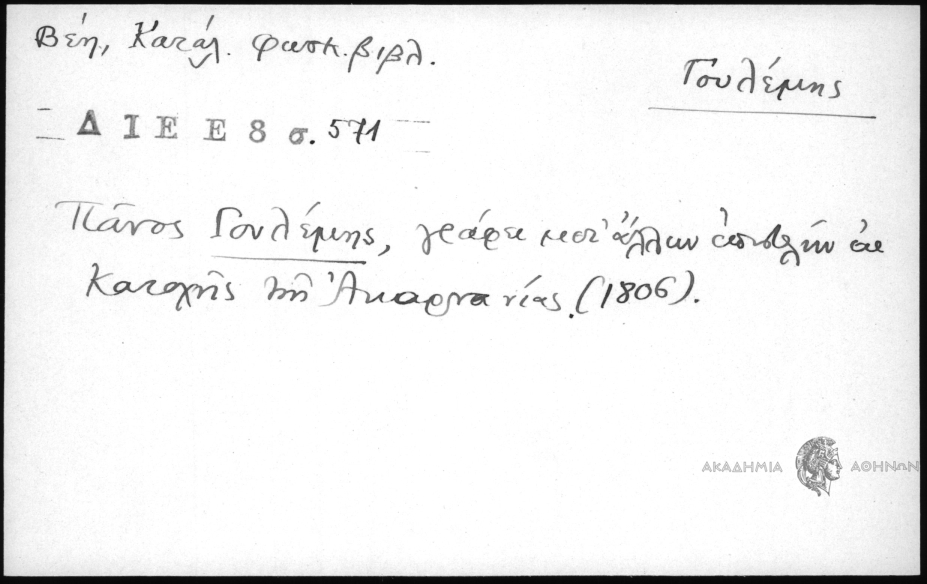 Βέη, Κατάλ. φωσκ. βιβλ.
Γουλέμης
Δ Ι Ε Ε 8 σ. 571
Πᾶνος Γουλέμης, γράφει μετ' ἄλλων ἐπιστολήν ἐκ
Κατοχῆς τῆς Ἀκαρνανίας. (1806).
ΑΚΑΔΗΜΙΑ ΑΘΗΝΩΝ